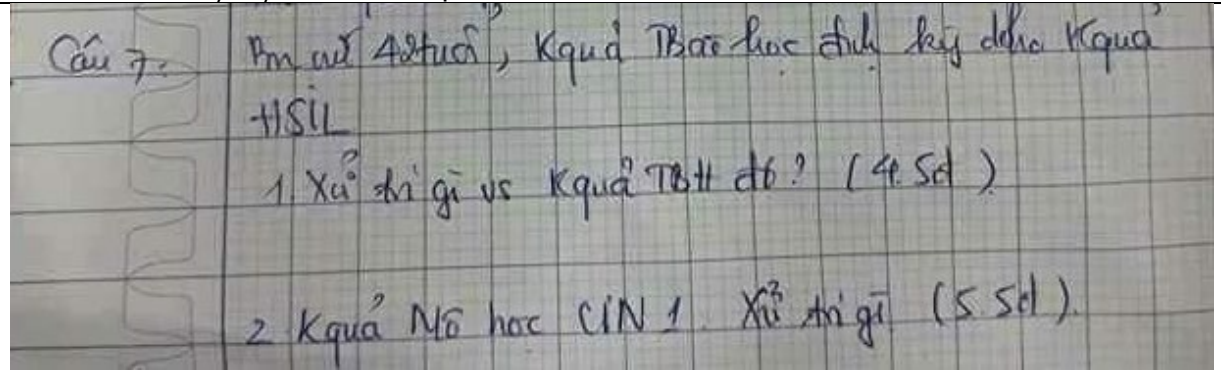 Câu 7: Bn nữ 42 tuổi, Kquả TBào học định kỳ cho Kquả
HSIL
1. Xử trí gì vs Kquả TBH đó? (4.5đ)
2 Kquả Mô học CIN 1. Xử trí gì (5.5đ).